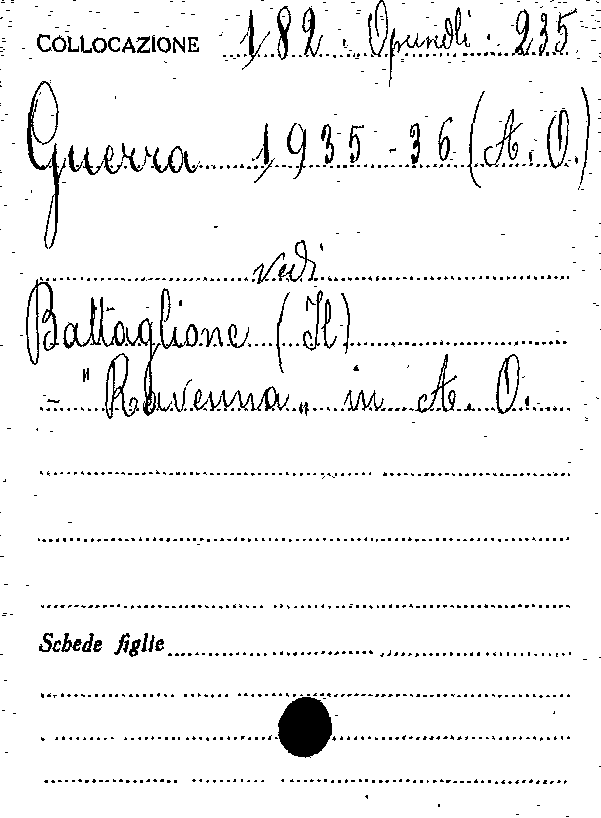 COLLOCAZIONE 182. Opuscoli. 235
Guerra 1935-36 (A. O.)
vedi
Battaglione (Il)
- "Ravenna„ in A. O.
Schede figlie